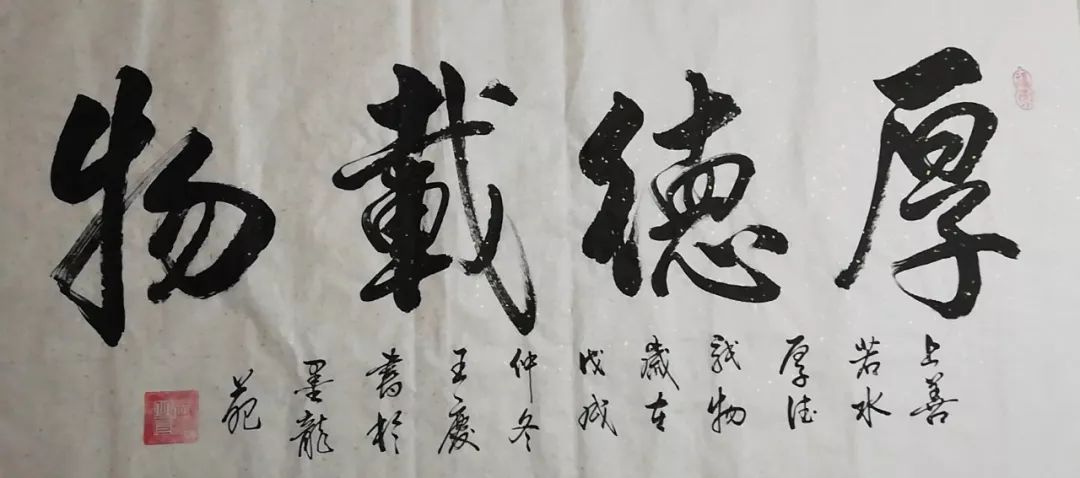 厚德載物
上善
若水
厚德
載物
歲在
戊戌
仲冬
王慶
書於
墨龍
苑